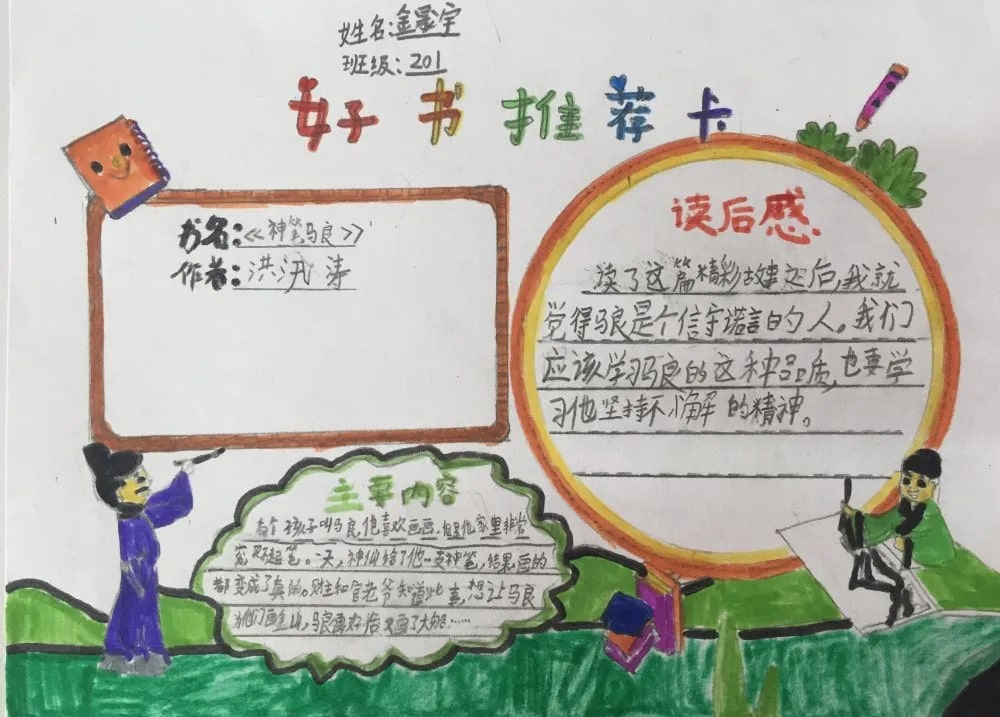 姓名:金晟宇
班级:201
好书推荐卡
书名:《神笔马良》
作者:洪汛涛
读后感
读了这篇精彩故事之后,我就
觉得马良是个信守诺言的人。我们
应该学习马良的这种品质,也要学
习他坚持不懈的精神。
主要内容
有个孩子叫马良,他喜欢画画,但是他家里非常
穷,买不起笔。一天,神仙给了他一支神笔,结果画的
都变成了真的。财主和官老爷知道此事,想让马良
为他们画金山,马良画好后又画了大船……